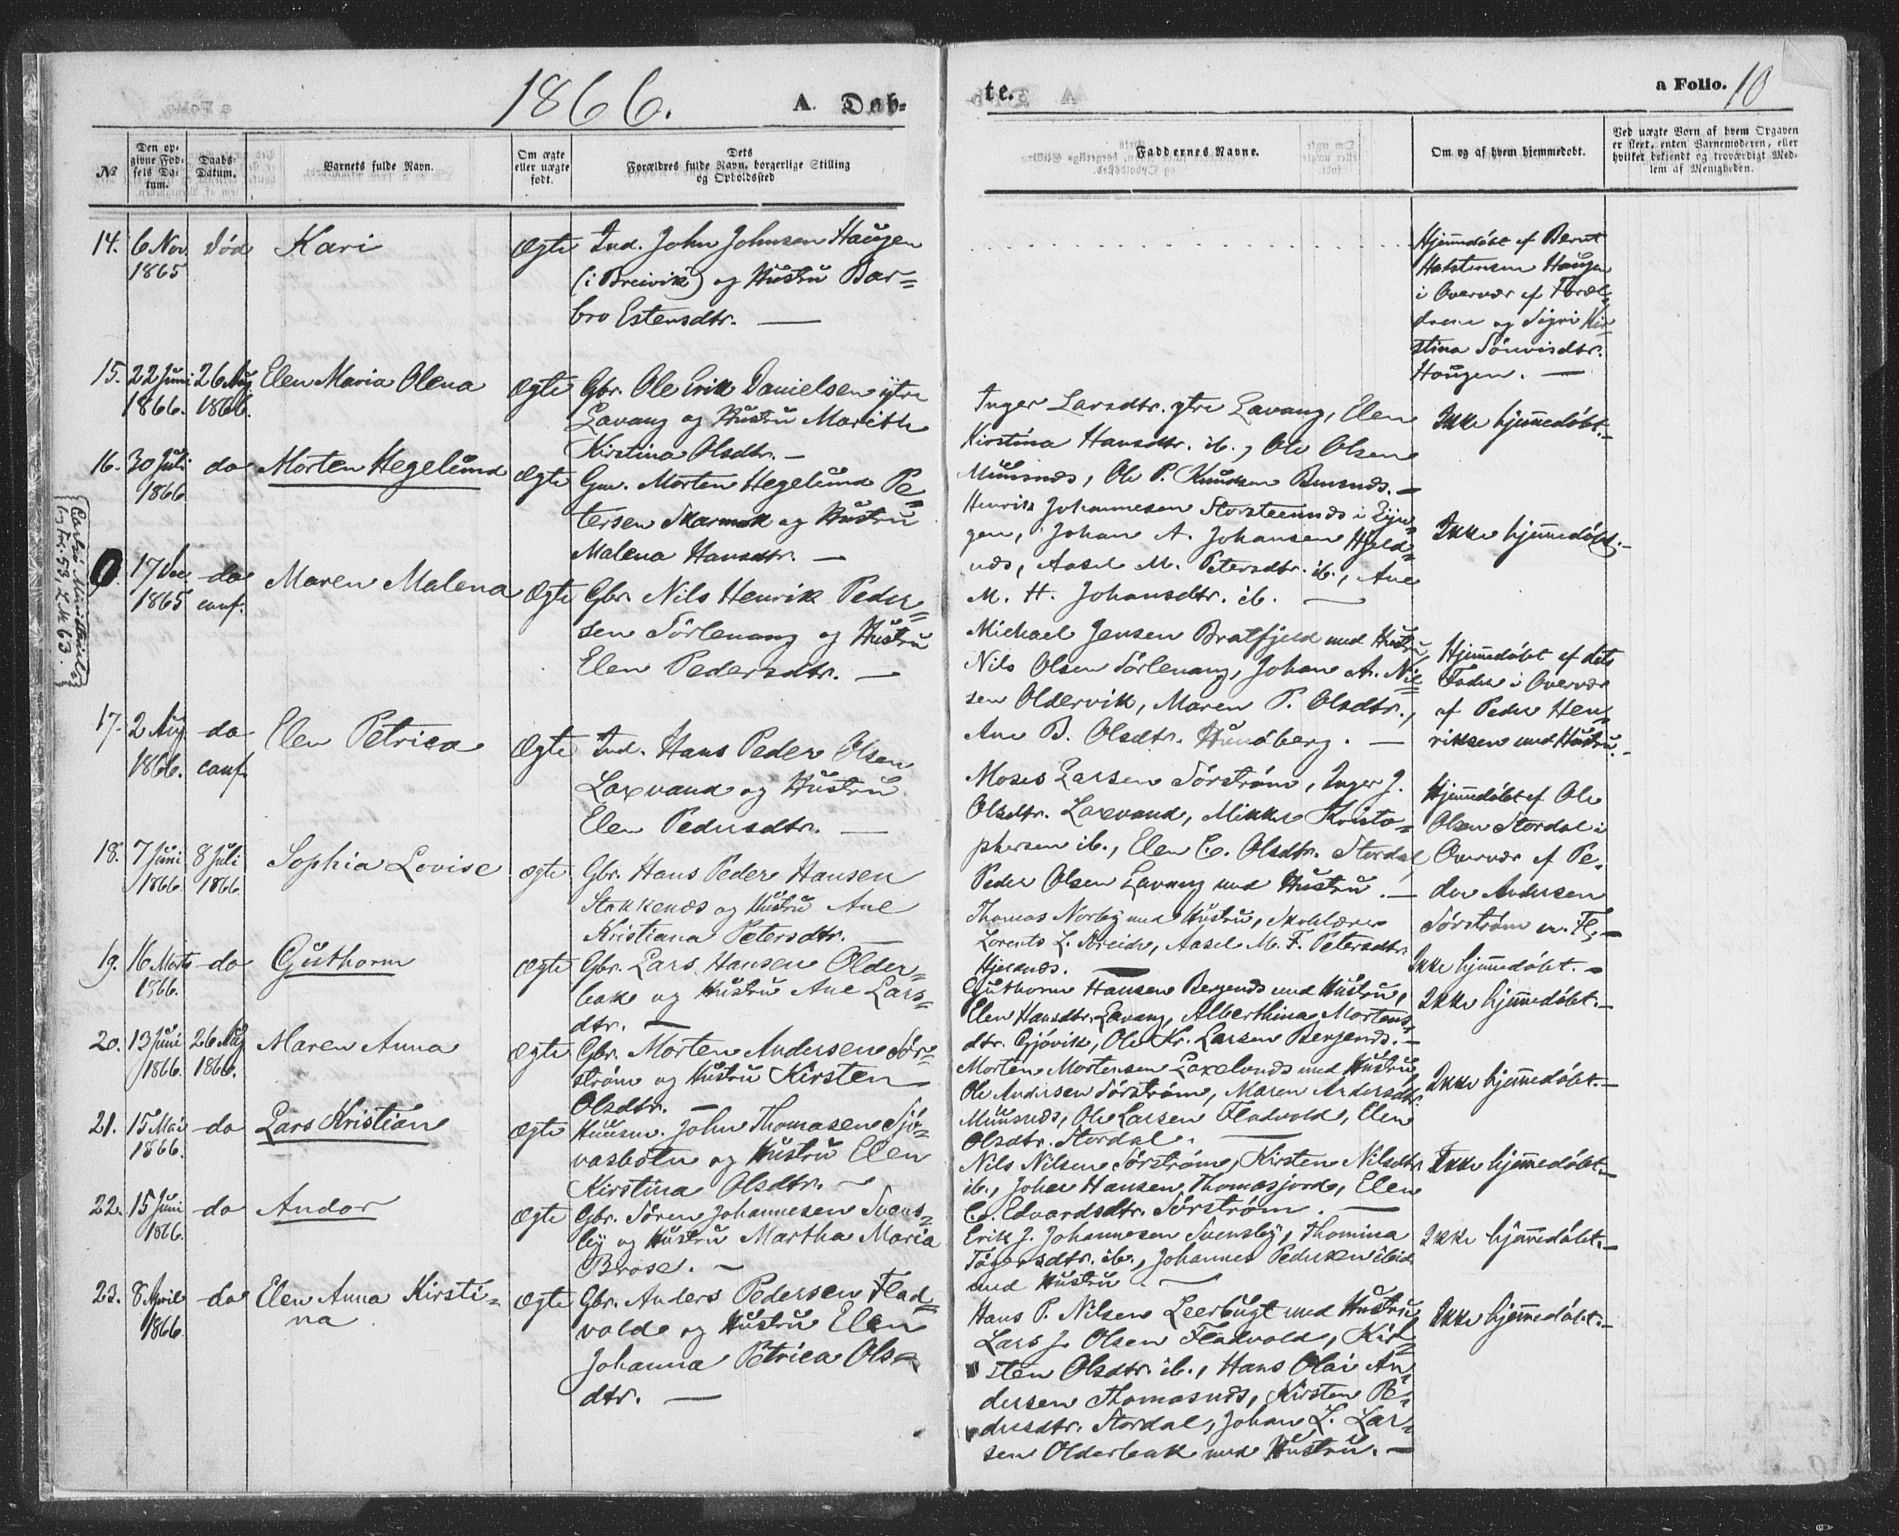 1866.
A. Døb-
te.
a Folio. 10
№
Den op-
givne Fød-
sels Da-
tum.
Daabs-
Datum.
Barnets fulde Navn.
Om ægte
eller uægte
født.
Dets
Forældres fulde Navn, borgerlige Stilling
og Opholdssted
Faddernes Navne.
Om og af hvem hjemmedøbt.
Ved uægte Børn af hvem Opgaven
er skeet, enten Barnemoderen, eller
hvilket bekjendt og troværdigt Med-
lem af Menigheden.
14. 6 Nov. 1865
død
Kari
Ægte
Ind. John Johnsen Haugen
(i Breivik) og Hustru Bar=
bro Estensdtr. —
Hjemmedøbt af Bernt
Halstensen Haugen
i Overvær af Foræl-
drene og Sigri Kir-
stina Sönvisdtr.
Haugen. —
15. 22 Juni 1866.
26 Aug 1866.
Elen Maria Olena
Ægte
Gbr. Ole Erik Danielsen ytre
Lavang og Hustru Marith
Kirstina Olsdtr. —
Inger Larsdtr. ytre Lavang, Elen
Kirstina Hansdtr. ib., Ole Olsen
Muusnæs, Ole P. Knudsen Buusnæs. —
Ikke hjemmedøbt. —
16. 30 Juli 1866
do
Morten Hegelund
Ægte
Gm. Morten Hegelund Pe=
tersen Skarmok og Hustru
Malena Hansdtr. —
Henrik Johannesen Storsteennæs i Lyn-
gen, Johan A. Johansen Hjeld=
næs, Aasel M. Petersdtr. ib., Ane
M. H. Johansdtr. ib. —
Ikke hjemmedøbt. —
0
17 Dec. 1865
do conf.
Maren Malena
Ægte
Gbr. Nils Henrik Peder=
sen Sörlenang og Hustru
Elen Pedersdtr. —
Michael Jensen Bratfjeld med Hustru,
Nils Olsen Sörlenang, Johan Ar. Nil=
sen Oldervik, Maren P. Olsdtr.,
Ane B. Olsdtr. Hunöberg. —
Hjemmedøbt af dets
Fader i Overvær
af Peder Hen-
riksen med Hustru. —
17. 2 Aug 1866.
do conf.
Elen Petrica
Ægte
Ind. Hans Peder Olsen
Laxvand og Hustru
Elen Pedersdtr. —
Moses Larsen Sörström, Inger J.
Olsdtr. Laxvand, Mikkel Kristo-
phersen ib., Elen C. Olsdtr. Stordal,
Peder Olsen Lavang med Hustru. —
Hjemmedøbt af Ole
Olsen Stordal i
Overvær af Pe-
der Andersen
Sörström m. Fl. —
18. 7 Juni 1866.
8 Juli 1866.
Sophia Lovise
Ægte
Gbr. Hans Peder Hansen
Stakkenæs og Hustru Ane
Kristiana Petersdtr. —
Thomas Norbÿ med Hustru, Skolelærer
Lorents L. Breide, Aasel M. F. Petersdtr.
Hjelnæs. —
Ikke hjemmedøbt. —
19. 16 Marts 1866.
do
Guthorm
Ægte
Gbr. Lars Hansen Older=
bak og Hustru Ane Lars-
dtr. —
Guthorm Hansen Bergenæs med Hustru,
Elen Hansdtr. Lavang, Alberthina Mortens-
dtr. Gjövik, Ole Kr. Larsen Bergenæs. —
Ikke hjemmedøbt. —
20. 13 Juni 1866.
26 Aug 1866.
Maren Anna
Ægte
Gbr. Morten Andersen Sör-
ström og Hustru Kirsten
Olsdtr. —
Morten Mortensen Laxelvnæs med Hustru,
Ole Andersen Sörström, Maren Andersdtr.
Muusnæs, Ole Larsen Fladvold, Elen
Olsdtr. Stordal. —
Ikke hjemmedøbt. —
21. 15 Mai 1866.
do
Lars Kristian
Ægte
Huusm. John Thomasen Sjö-
vasbotn og Hustru Elen
Kirstina Olsdtr. —
Nils Nilsen Sörström, Kirsten Nilsdtr.
ib., Johan Hansen Thomasjord, Elen
C. Edvardsdtr. Sörström. —
Ikke hjemmedøbt. —
22. 15 Juni 1866.
do
Andor
Ægte
Gbr. Sören Johannesen Svens-
by og Hustru Martha Maria
Brose. —
Erik J. Johannesen Svensby, Thomina
ib., Johannes Pedersen ibid
med Hustru. —
Ikke hjemmedøbt. —
23. 8 April 1866.
do
Elen Anna Kirsti-
na
Ægte
Gbr. Anders Pedersen Flad=
vold og Hustru Elen
Johanna Petrica Ols-
dtr. —
Hans P. Nilsen Leerbugt med Hustru
Lars J. Olsen Fladvold, Kir-
sten Olsdtr. ib., Hans Olai An-
dersen Thomasnæs, Kirsten Pe-
dersdtr. Stordal, Johan L. Lar-
sen Olderbak med Hustru. —
Ikke hjemmedøbt. —